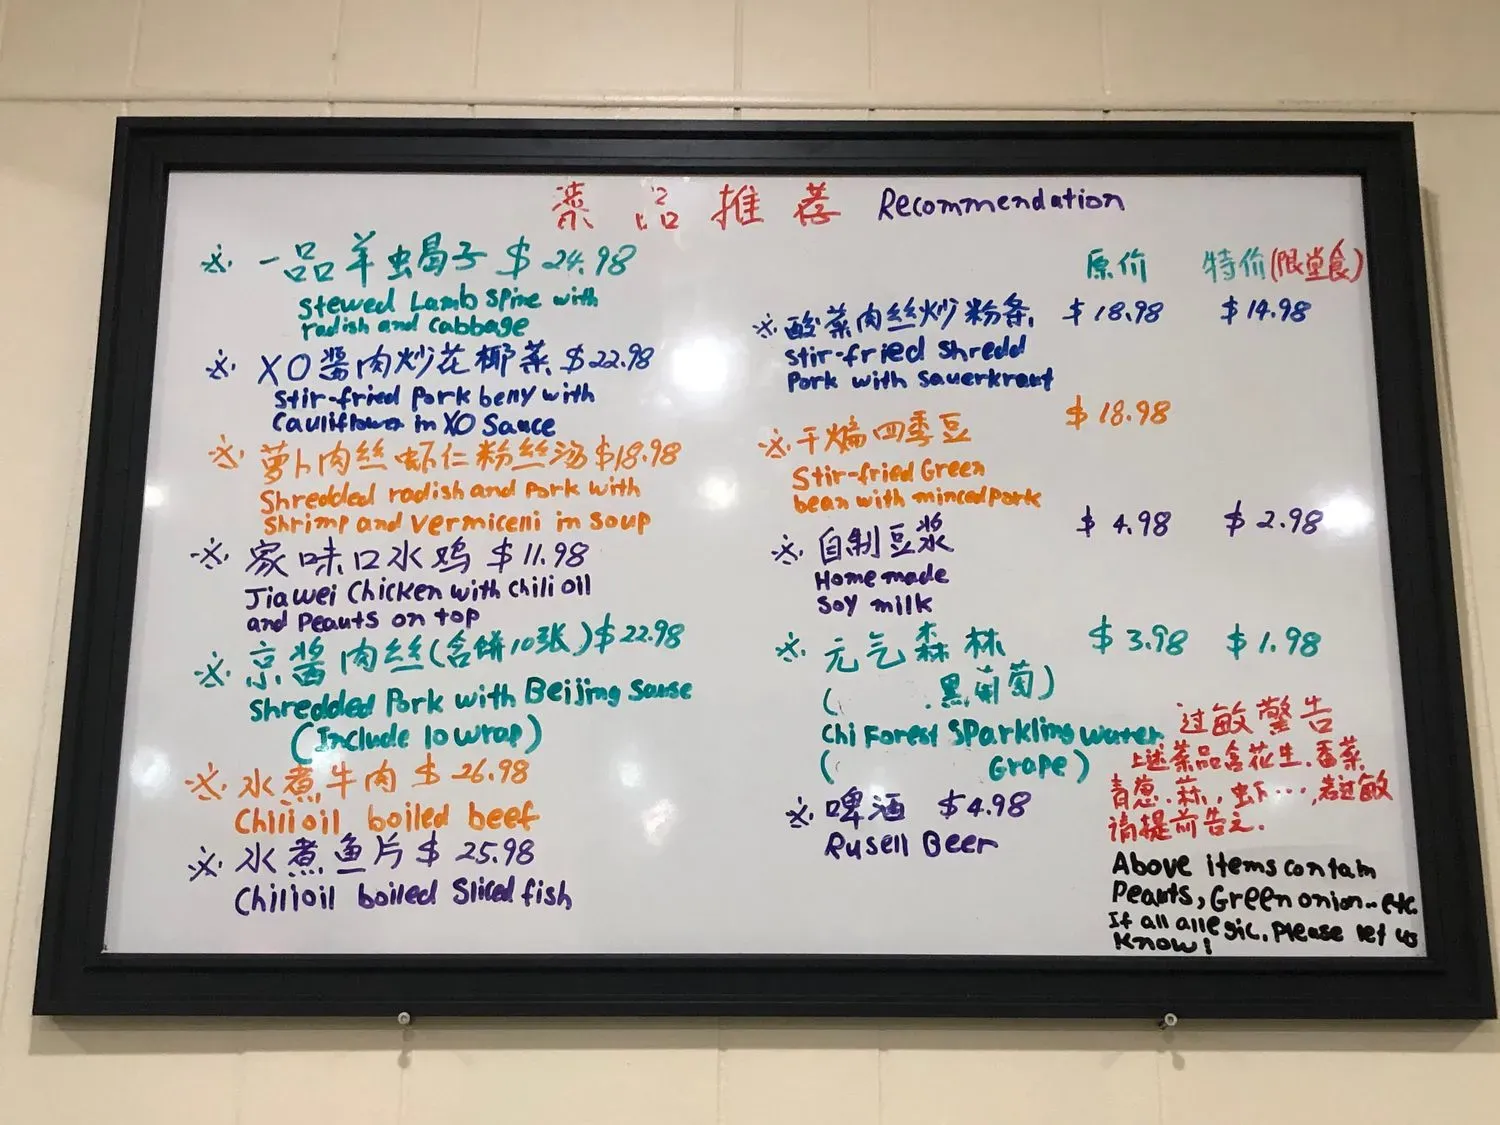 菜品推荐 Recommendation
※ 一品羊虫蝎子 $24.98
Stewed Lamb Spine with
radish and cabbage
※ XO酱肉炒花椰菜 $22.98
Stir-fried Pork belly with
Cauliflower in XO Sauce
※ 萝卜肉丝虾仁粉丝汤 $18.98
Shredded radish and Pork with
Shrimp and Vermiceni in Soup
※ 家味口水鸡 $11.98
Jiawei Chicken with Chili oil
and Peauts on top
※ 京酱肉丝(含饼10张) $22.98
Shredded Pork with Beijing Sause
(Include 10 wrap)
※ 水煮牛肉 $26.98
Chilioil boiled beef
※ 水煮鱼片 $25.98
Chilioil boiled Sliced fish
原价 特价(限堂食)
※ 酸菜肉丝炒粉条 $18.98 $14.98
Stir-fried Shredd
Pork with Sauerkraut
※ 干煸四季豆 $18.98
Stir-fried Green
bean with minced Pork
※ 自制豆浆 $4.98 $2.98
Home made
Soy milk
※ 元气森林 $3.98 $1.98
( 黑葡萄)
Chi Forest Sparkling Water
( Grape)
※ 啤酒 $4.98
Rusell Beer
过敏警告
上述菜品含花生.香菜
青葱.蒜.虾…,若过敏
请提前告之.
Above items contain
Peauts, Green onion..etc.
If all allegic. Please let us
Know!